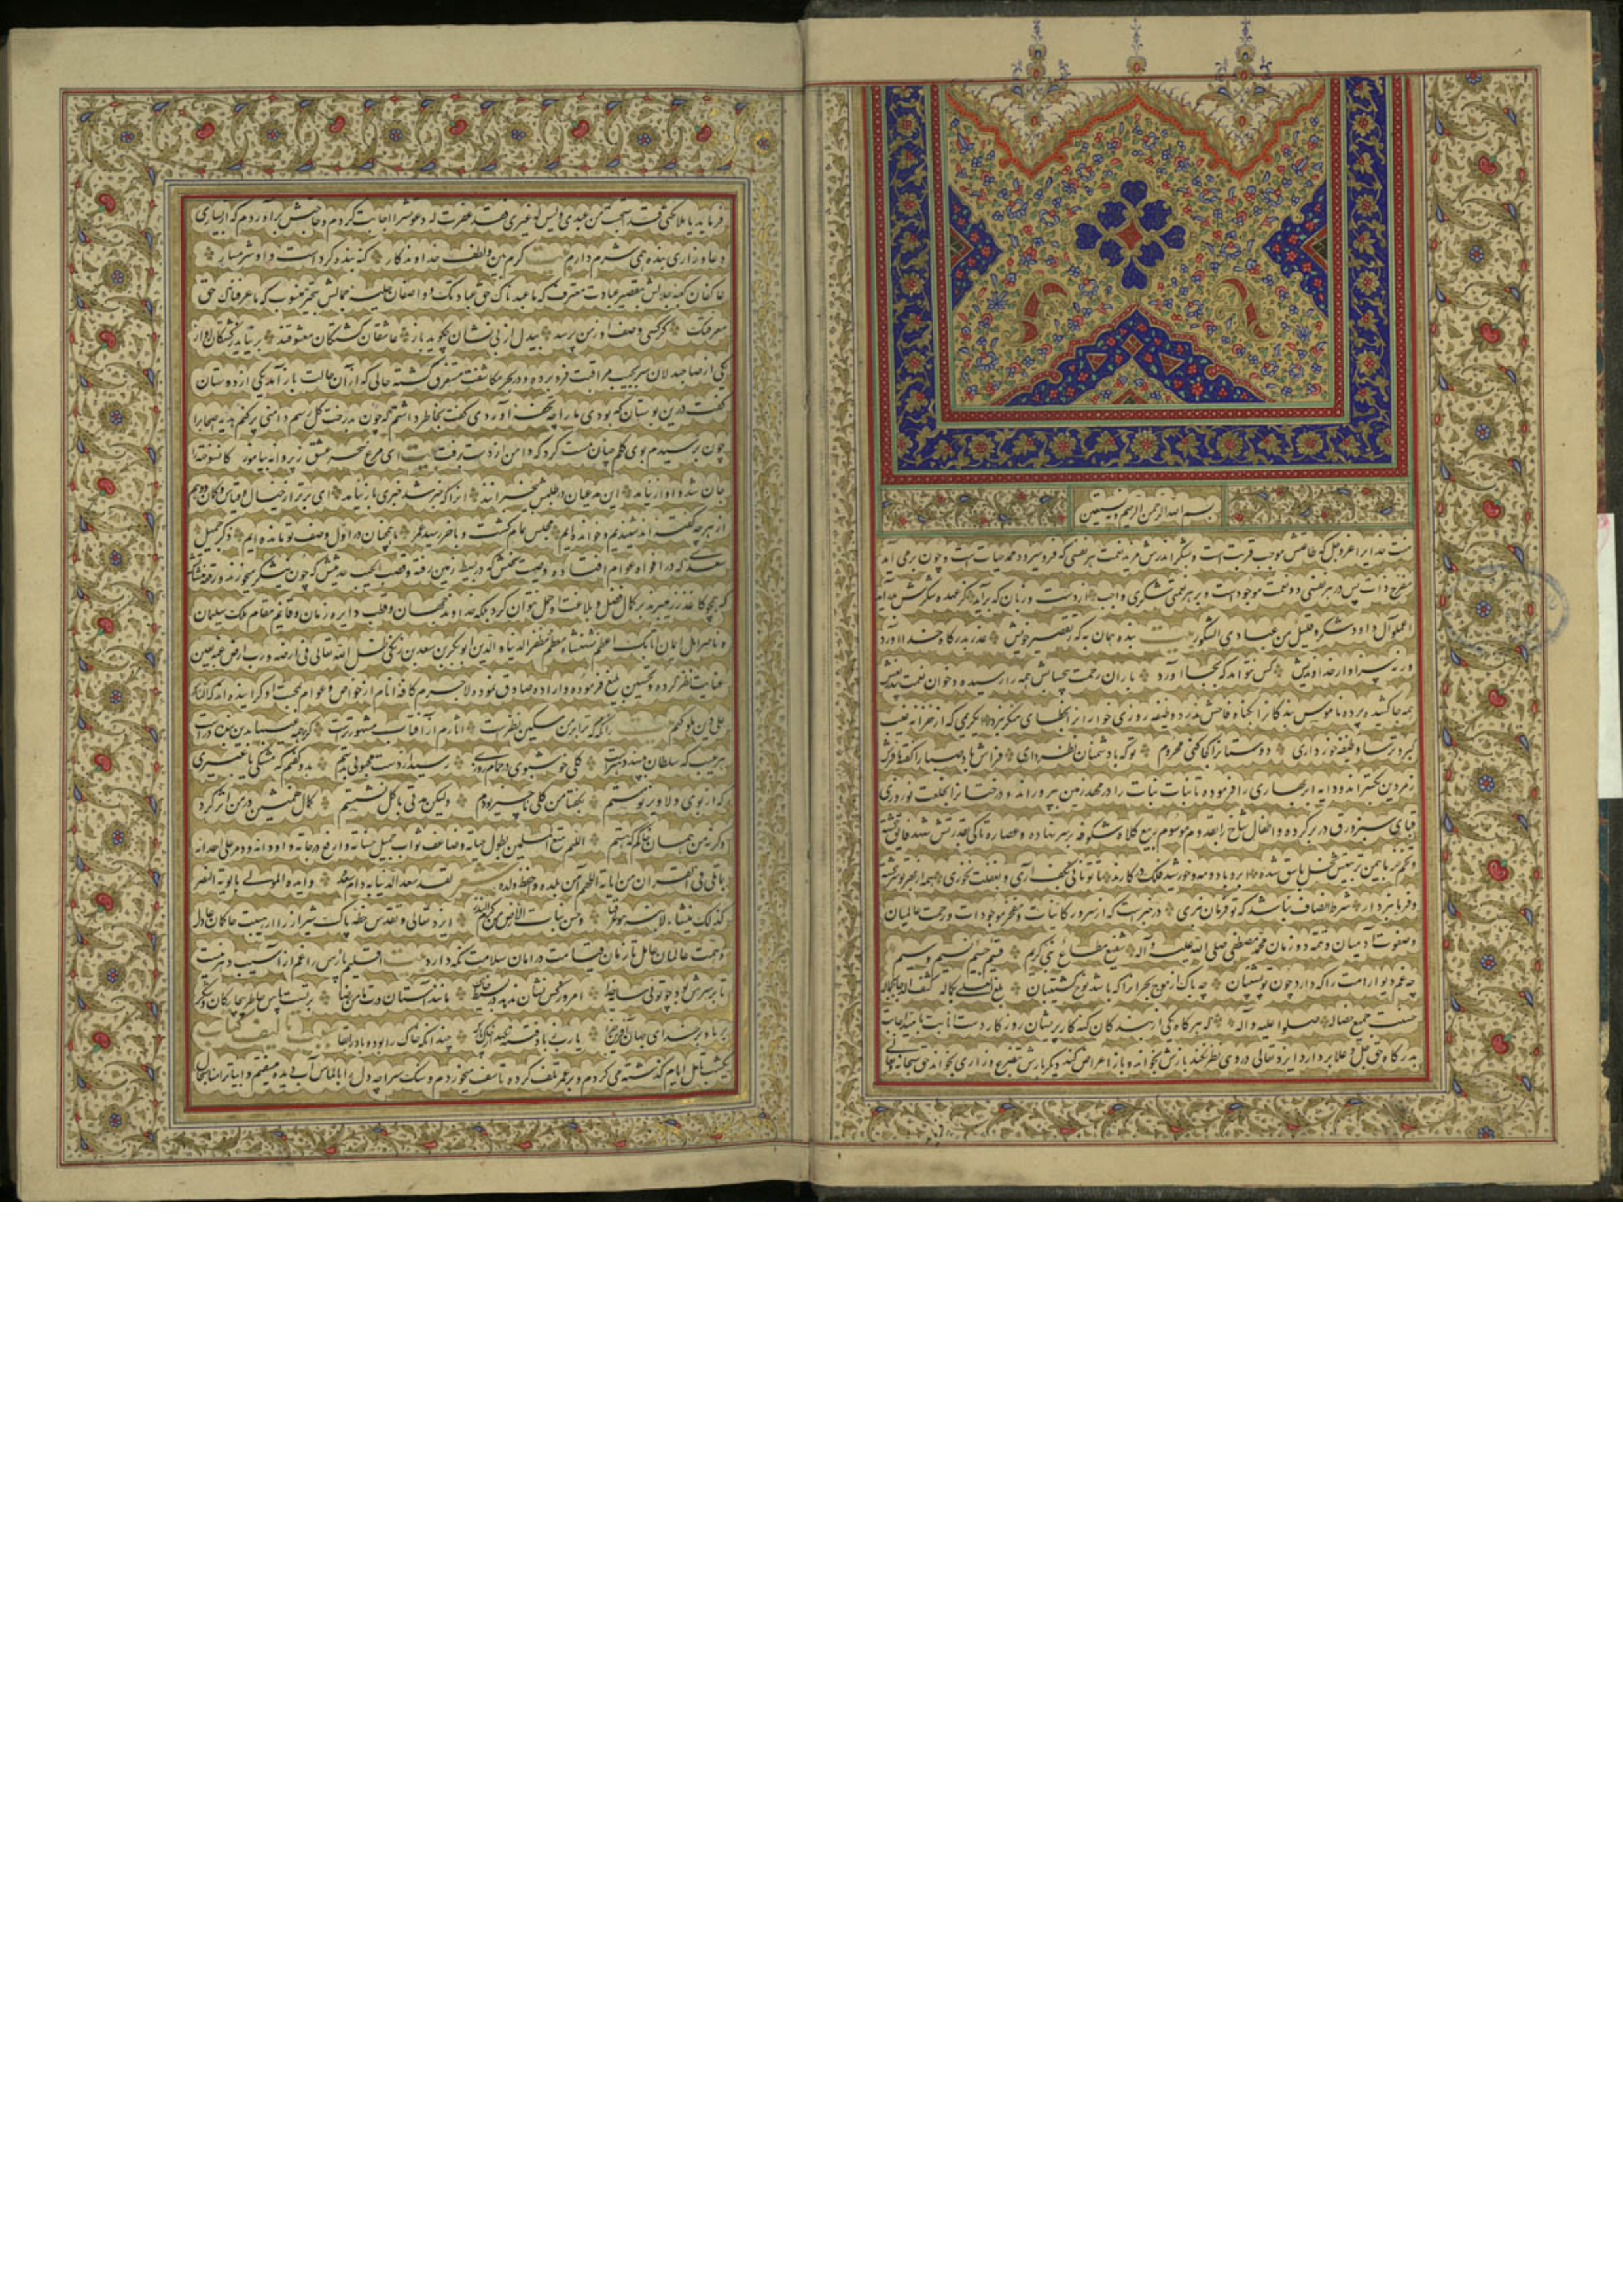 بسم الله الرحمن الرحیم و به نستعین
منت خدایرا عز و جل که طاعتش موجب قربت است و بشکر اندرش مزید نعمت هر نفسی که فرو میرود ممد حیات است و چون برمی آید
مفرح ذات پس در هر نفسی دو نعمت موجود است و بر هر نعمتی شکری واجب از دست و زبان که برآید کز عهده شکرش بدر آید
اعملوا آل داود شکرا و قلیل من عبادی الشکور بیت بنده همان به که ز تقصیر خویش عذر بدرگاه خدا آورد
ورنه سزاوار خداوندیش کس نتواند که بجا آورد باران رحمت بی حسابش همه را رسیده و خوان نعمت بیدریغش
همه جا کشیده پرده ناموس بندگان بگناه فاحش ندرد و وظیفه روزی خواران بخطای منکر نبرد ای کریمی که از خزانه غیب
گبر و ترسا وظیفه خور داری دوستانرا کجا کنی محروم تو که با دشمنان نظر داری فراش باد صبا را گفته تا فرش
زمردین بگسترد و دایه ابر بهاری را فرموده تا بنات نبات را در مهد زمین بپروراند و درختانرا بخلعت نوروزی
قبای سبز ورق در بر کرده و اطفال شاخ را بقدوم موسم ربیع کلاه شکوفه بر سر نهاده و عصاره تاکی بقدرتش شهد فایق گشته
و تخم خرما بیمن تربیتش نخل باسق شده ابر و باد و مه و خورشید و فلک در کارند تا تو نانی بکف آری و بغفلت نخوری همه از بهر تو سرگشته
و فرمانبردار شرط انصاف نباشد که تو فرمان نبری در خبر است که از سرور کاینات و مفخر موجودات و رحمت عالمیان
و صفوت آدمیان و تتمه دور زمان محمد مصطفی صلی الله علیه و آله شفیع مطاع نبی کریم قسیم جسیم نسیم وسیم
چه غم دیوار امت را که دارد چون تو پشتیبان چه باک از موج بحر آنرا که باشد نوح کشتیبان بلغ العلی بکماله کشف الدجی بجماله
حسنت جمیع خصاله صلوا علیه و آله که هر گاه یکی از بندگان گنه کار پریشان روزگار دست انابت بامید اجابت
بدرگاه حق جل و علا بردارد ایزد تعالی در وی نظر نکند بازش بخواند و باز اعراض کند دیگر بارش بتضرع و زاری بخواند حق سبحانه و تعالی
فرماید یا ملائکتی قد استحییت من عبدی و لیس له غیری فقد غفرت له دعوتش را اجابت کردم و حاجتش برآوردم که از بسیاری
دعا و زاری بنده همی شرم دارم بیت کرم بین و لطف خداوندگار گنه بنده کردست و او شرمسار
عاکفان کعبه جلالش بتقصیر عبادت معترف که ما عبدناک حق عبادتک و واصفان حلیه جمالش بتحیر منسوب که ما عرفناک حق
معرفتک گر کسی وصف او ز من پرسد بیدل از بی نشان چگوید باز عاشقان کشتگان معشوقند بر نیاید ز کشتگان آواز
یکی از صاحبدلان سر بجیب مراقبت فرو برده و در بحر مکاشفت مستغرق گشته حالی که از آن حالت باز آمد یکی از دوستان
گفت درین بوستان که بودی ما را چه تحفه آوردی گفت بخاطر داشتم که چون بدرخت گل برسم دامنی پر کنم هدیه اصحابرا
چون برسیدم بوی گلم چنان مست کرد که دامن از دست برفت بیت ای مرغ سحر عشق ز پروانه بیاموز کان سوخته را
جان شد و آواز نیامد این مدعیان در طلبش بیخبرانند آنرا که خبر شد خبری باز نیامد ای برتر از خیال و قیاس و گمان و وهم
از هر چه گفته اند شنیدیم و خوانده ایم مجلس تمام گشت و باخر رسید عمر ما همچنان در اول وصف تو مانده ایم ذکر جمیل
سعدی که در افواه عوام افتاده وصیت سخنش که در بسیط زمین رفته و قصب الجیب حدیثش که چون شکر میخورند و رقعه منشآتش
که چو کاغذ زر میبرند بر کمال فضل و بلاغت او حمل نتوان کرد بلکه خداوند جهان و قطب دایره زمان و قایم مقام ملک سلیمان
و ناصر اهل ایمان اتابک اعظم شهنشاه معظم مظفر الدنیا و الدین ابوبکر بن سعد بن زنگی ظل الله تعالی فی ارضه و رب ارض عنه بعین
عنایت نظر کرده و تحسین بلیغ فرموده و اراده صادق نموده لاجرم کافه انام از خواص و عوام بمحبت او گراینده اند که الناس
علی دین ملوکهم بیت زانگه که ترا بر من مسکین نظرست آثارم از آفتاب مشهورترست گر خود همه عیبها بدین بنده درست
هر عیب که سلطان بپسندد هنرست گلی خوشبوی در حمام روزی رسید از دست محبوبی بدستم بدو گفتم که مشکی یا عبیری
که از بوی دلاویز تو مستم بگفتا من گلی ناچیز بودم ولیکن مدتی با گل نشستم کمال همنشین در من اثر کرد
وگرنه من همان خاکم که هستم اللهم متع المسلمین بطول حیاته و ضاعف ثواب جمیل حسناته و ارفع درجات اودائه و دمر علی اعدائه
بما تلی فی القرآن من آیاته اللهم آمن بلده و احفظ ولده شعر لقد سعد الدنیا به دام سعده و ایده المولی بالویة النصر
کذلک ینشاء لینة هو عرقها و حسن نبات الارض من کرم البذر ایزد تعالی و تقدس خطه پاک شیراز را بهیبت حاکمان عادل
و همت عالمان عامل تا زمان قیامت در امان سلامت نگه دارد بیت اقلیم پارس را غم از آسیب دهر نیست
تا بر سرش بود چو توئی سایه خدا امروز کس نشان ندهد در بسیط خاک مانند آستان درت مامن رضا بر تست پاس خاطر بیچارگان و شکر
بر ما و بر خدای جهان آفرین جزا یارب ز باد فتنه نگهدار خاک پارس چندانکه خاک را بود و باد را بقا سبب تالیف کتاب
یکشب تامل ایام گذشته می کردم و بر عمر تلف کرده تاسف میخوردم و سنگ سراچه دل را بالماس آب دیده میسفتم و این ابیات مناسب حال